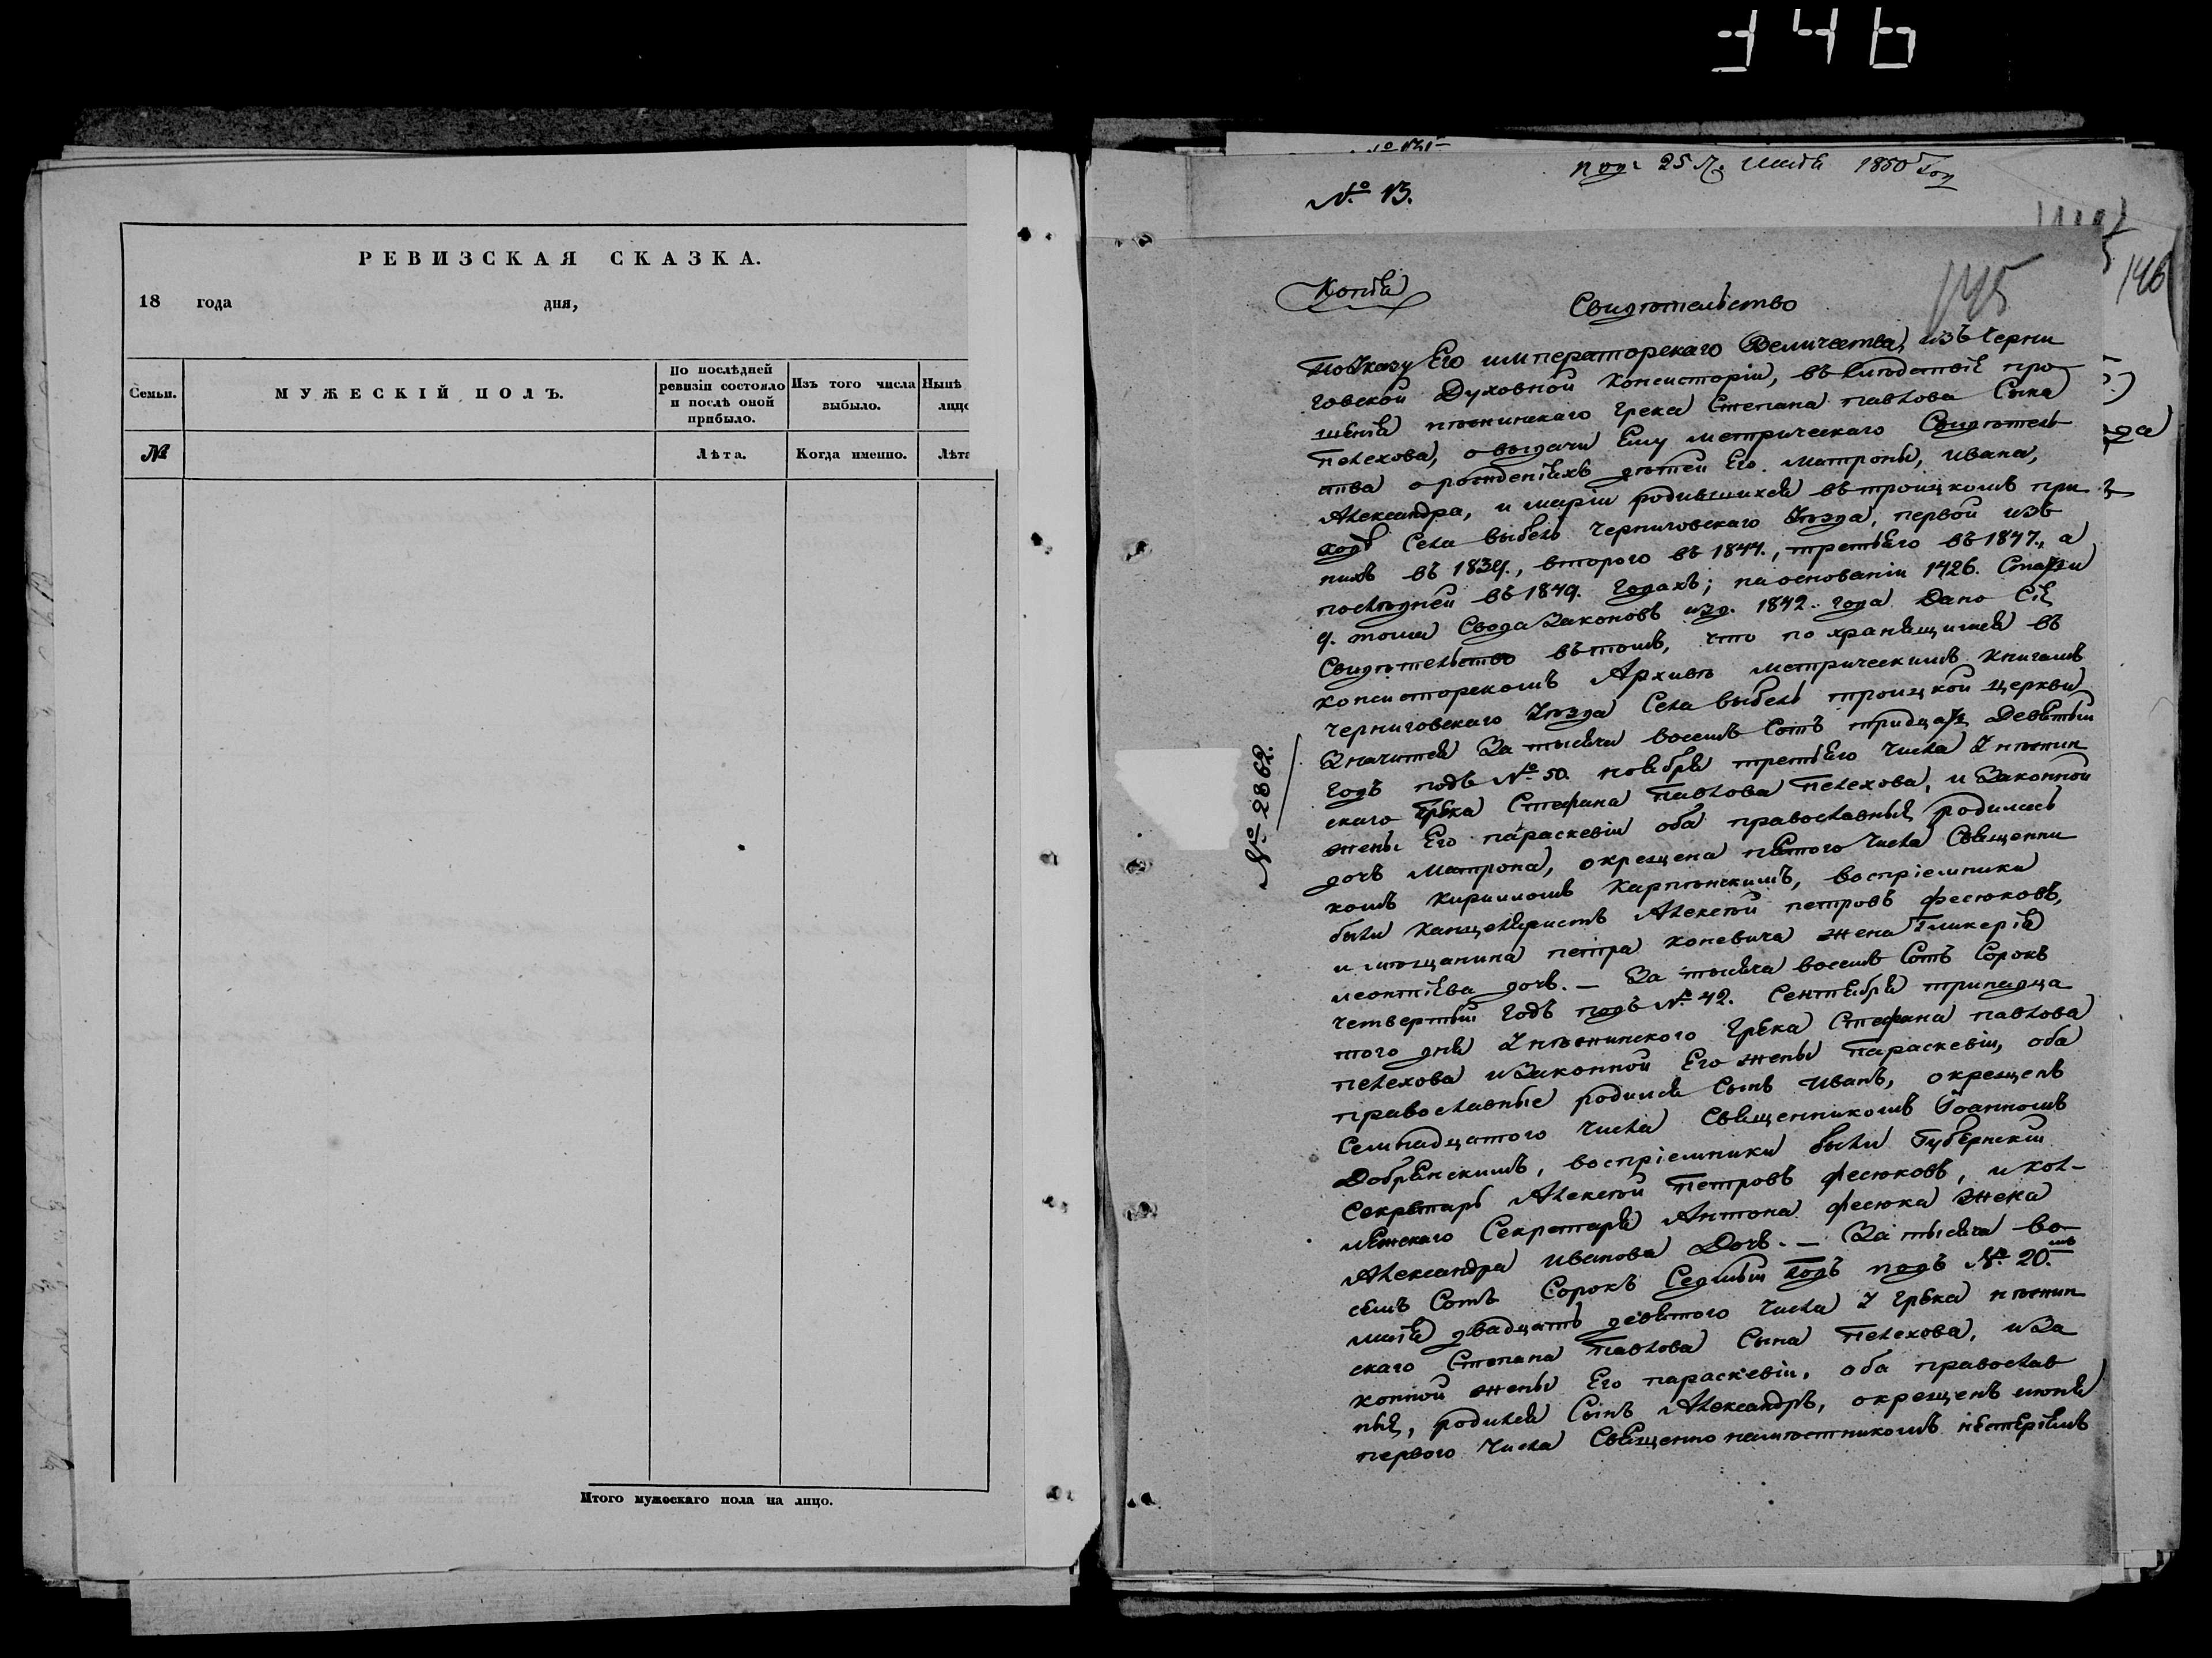 346
РЕВИЗСКАЯ СКАЗКА.
18 года дня,
Семьи.
МУЖЕСКІЙ ПОЛЪ.
По послѣдней ревизіи состояло и послѣ оной прибыло.
Изъ того числа выбыло.
Нынѣ лицо
№
Лѣта.
Когда именно.
Лѣта
Итого мужескаго пола на лицо.
25 Маія 1850 год
№ 13.
146
145
Копія
Свидѣтельство
По Указу Его императорскаго Величества, изъ Черни
говской Духовной Консисторіи, въ слѣдствіе про
шенія нѣжинскаго грека Степана павлова Сына
пелехова, о выдачи Ему метрическаго Свидѣтель
ства о рожденіяхъ дѣтей Его Матроны, Ивана,
Александра, и маріи родившихся въ троицкомъ при
ходѣ Села выбель Черниговскаго Уѣзда, первой изъ
нихъ въ 1839., второго въ 1844., третьяго въ 1847., а
послѣдней въ 1849. Годахъ; на основаніи 1426. Статьи
9. тома Свода Законовъ изд. 1842. года Дано Сіе
Свидѣтельство въ томъ, что по хранящимся въ
консисторскомъ Архивѣ метрическимъ Книгамъ
Черниговскаго Уѣзда Села выбель троицкой церкви
Значится За тысяча восемъ Сотъ тридцать Девятый
Годъ подъ № 50. ноября третьяго Числа У нѣжин
скаго Грека Стефана Павлова Пелехова, и Законной
жены Его параскевіи оба православныя родилась
дочь Матрона, окрещена пятого Числа Священни
комъ Кирилломъ Карпинскимъ, воспріемники
были Канцеляристъ Алексѣй петровъ фесюковъ,
и мѣщанина петра коневича жена Гликерія
леонтіева дочь. — За тысяча восемъ Сотъ Сорокъ
четвертый Годъ подъ № 42. Сентября тринадца
того дня У нѣжинского Грека Стефана павлова
пелехова и Законной Его жены Параскевіи, оба
православные родился Сынъ Иванъ, окрещенъ
Семнадцатого Числа Священникомъ Іоанномъ
Добрянскимъ, воспріемники были Губернскій
Секретарь Алексѣй Петровъ фесюковъ, и кол-
лежскаго Секретаря Антона фесюка жена
Александра Иванова Дочь. — За тысяча во
семъ Сотъ Сорокъ Седьмый Годъ подъ № 20.мъ
маія двадцать девятого Числа У Грека нѣжин
скаго Степана Павлова Сына Пелехова, и За
конной жены Его параскевіи, оба православ
ныя, родился Сынъ Александръ, окрещенъ июня
первого Числа Священно намѣстникомъ нестеріемъ
№ 2862.